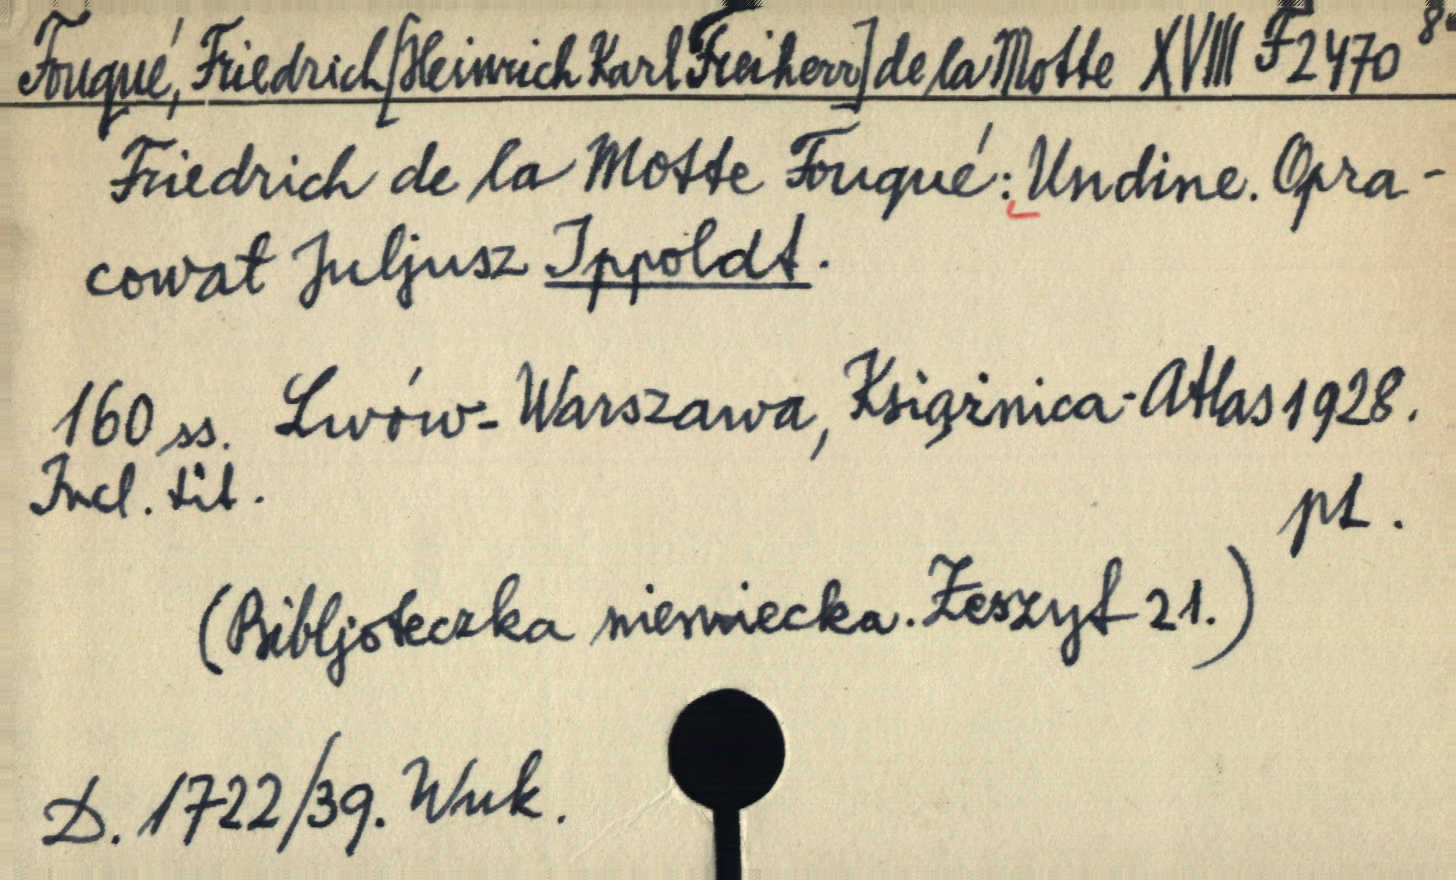 Fouqué, Friedrich [Heinrich Karl Freiherr] de la Motte XVIII F 2470 8°
Friedrich de la Motte Fouqué: Undine. Opra-
cował Juljusz Ippoldt.
160 ss. Lwów-Warszawa, Książnica-Atlas 1928.
Incl. tit.
pł.
(Bibljoteczka niemiecka. Zeszyt 21.)
D. 1722/39. Wuk.